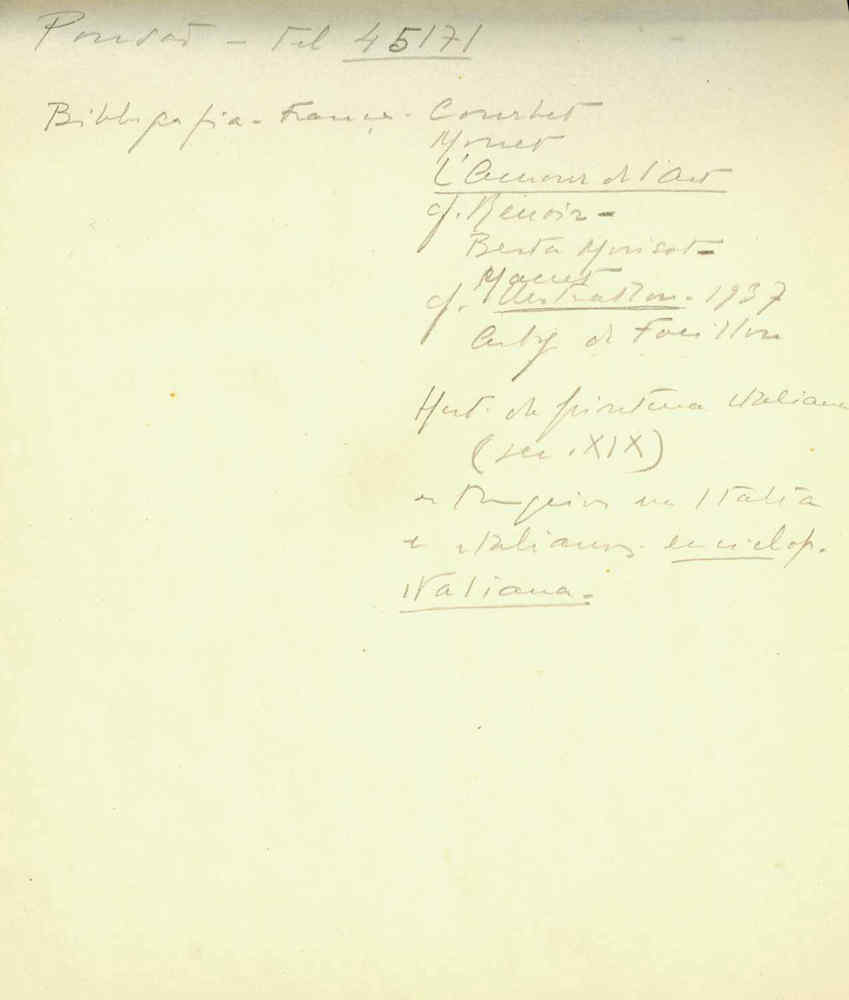 Ponsat - Tel 45171
Bibliografia - França - Courbet
Monet
L'Amour de l'Art
cf. Renoir -
Berta Morisot -
Manet
cf. Illustration - 1937
de Focillon
Hist. da pintura italiana
(sec. XIX)
em Italia
e italianos - enciclop.
italiana -